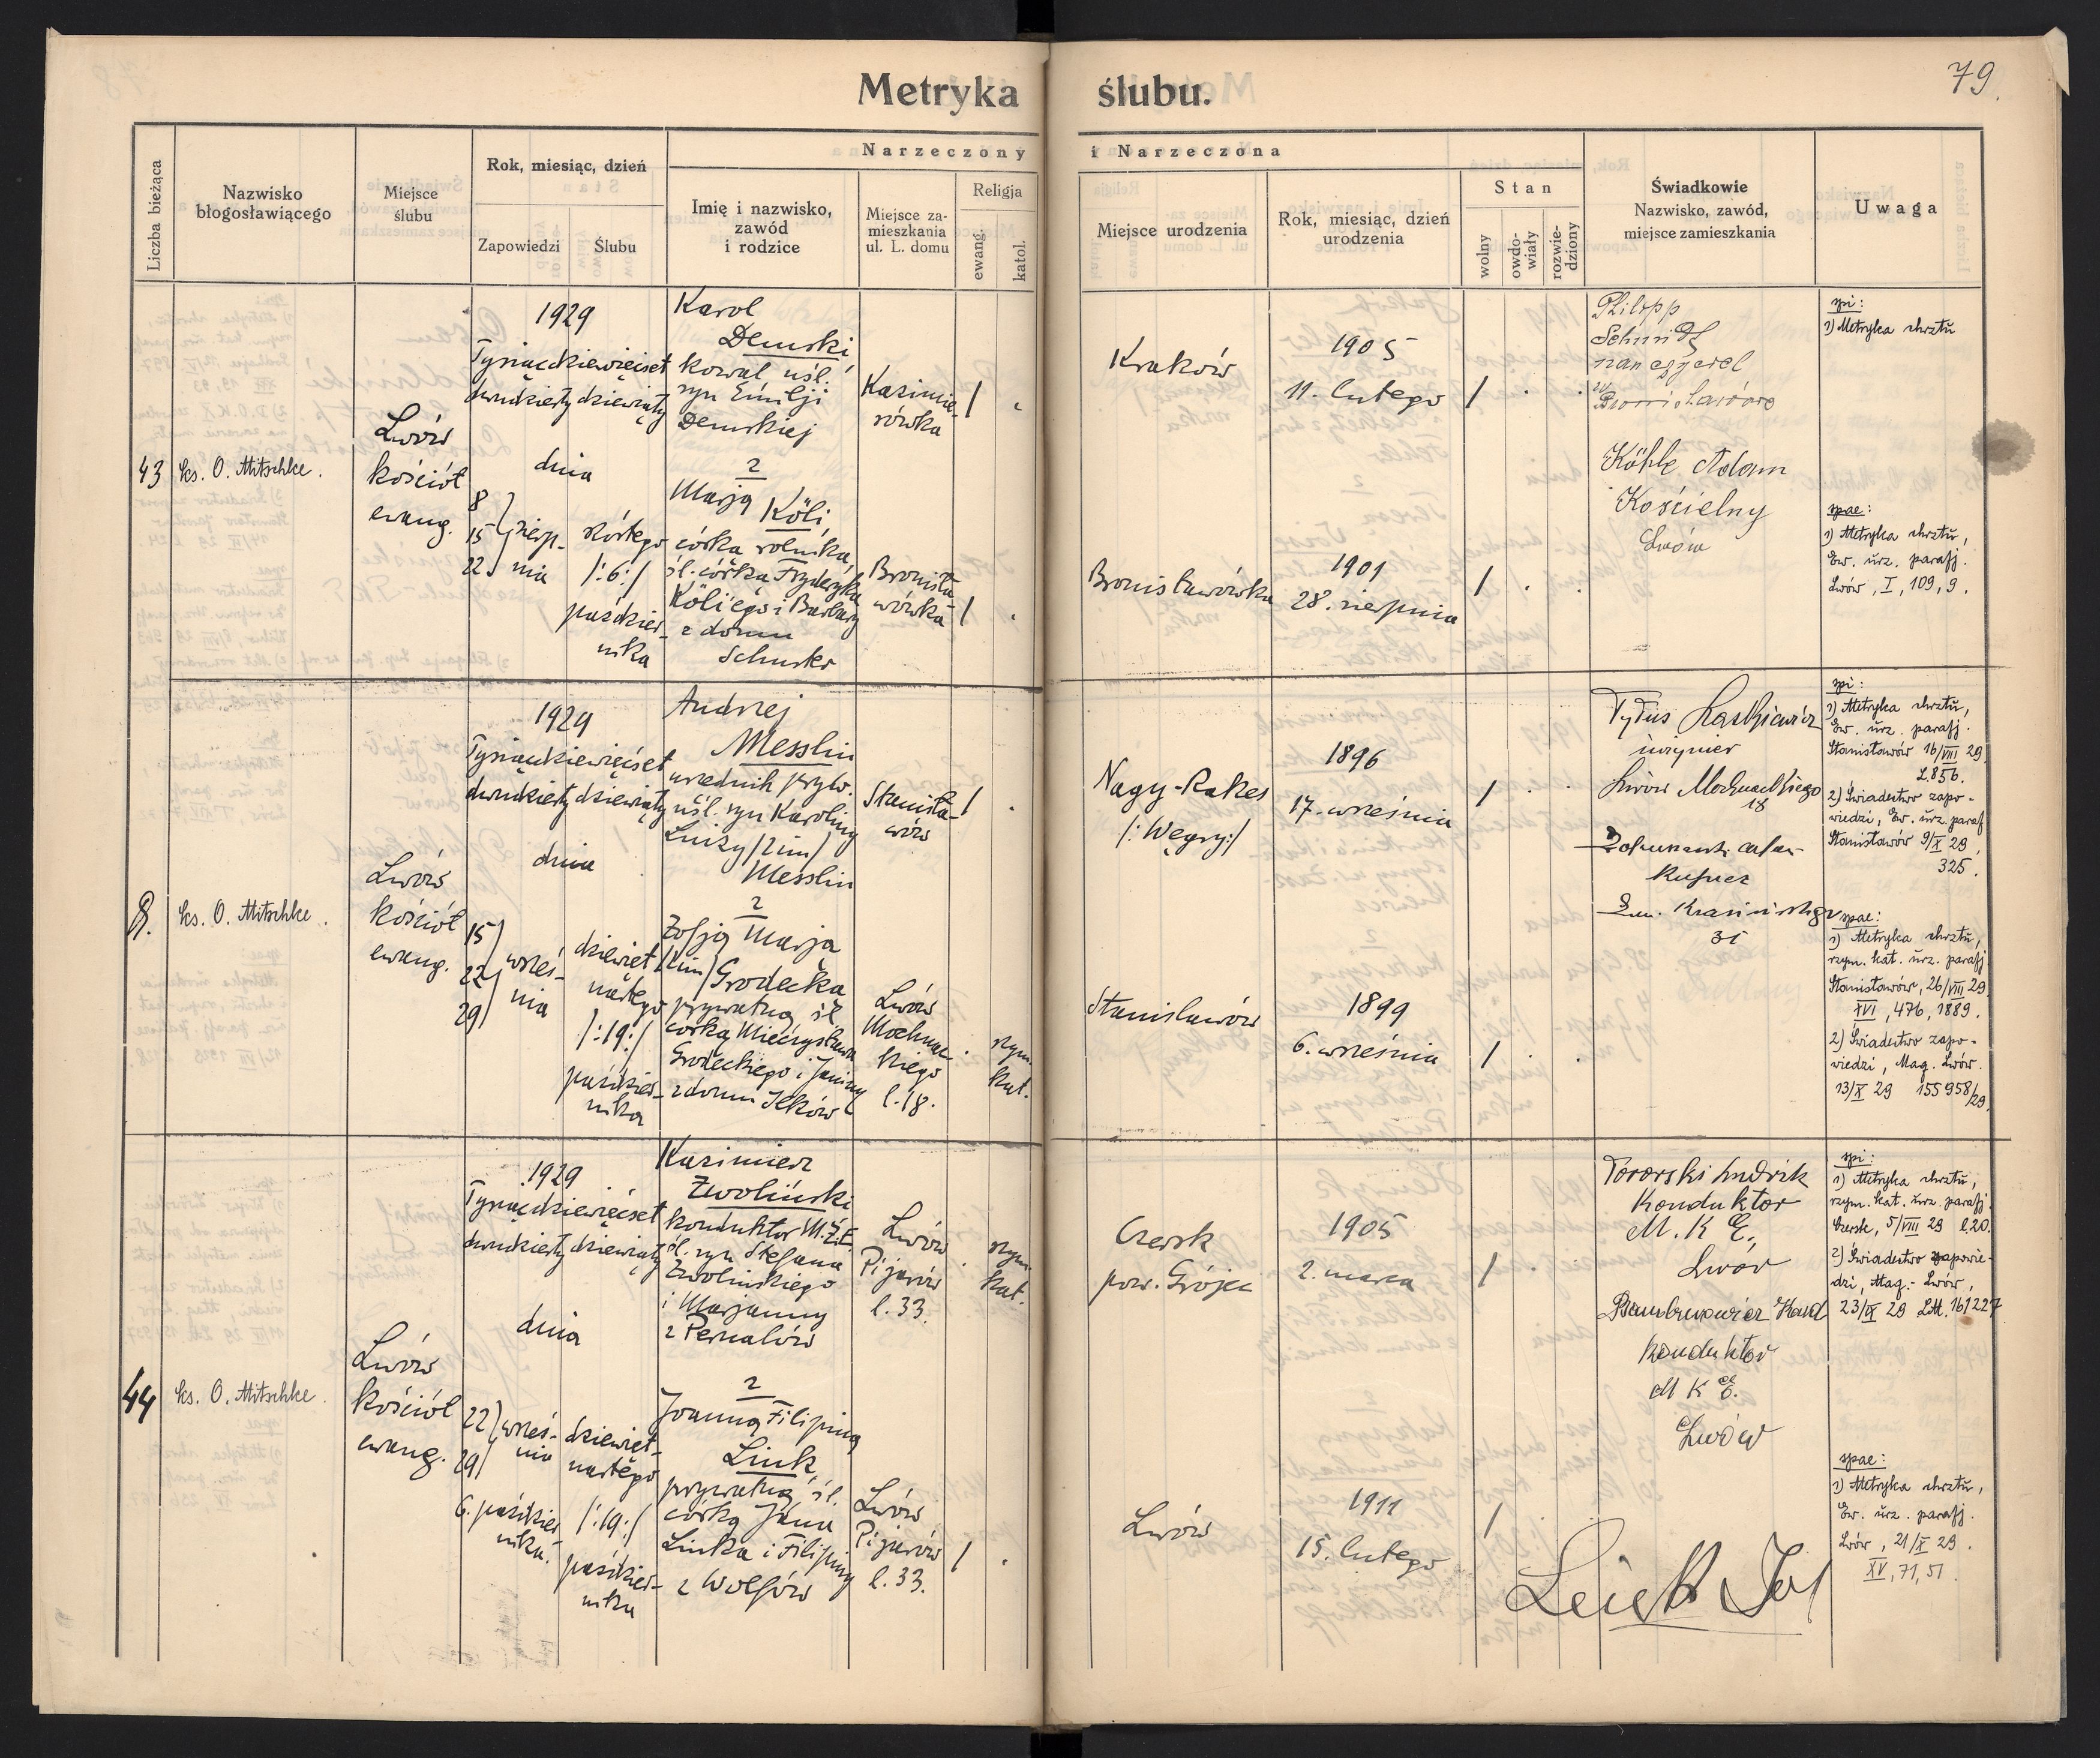 79.
Metryka ślubu.
Liczba bieżąca
Nazwisko
błogosławiącego
Miejsce
ślubu
Rok, miesiąc, dzień
Zapowiedzi
Ślubu
Narzeczony i Narzeczona
Imię i nazwisko,
zawód
i rodzice
Miejsce za-
mieszkania
ul. L. domu
Religja
ewang.
katol.
Miejsce urodzenia
Rok, miesiąc, dzień
urodzenia
Stan
wolny
owdo-
wiały
rozwie-
dziony
Świadkowie
Nazwisko, zawód,
miejsce zamieszkania
Uwaga
43
ks. O. Mitschke.
Lwów
kościół
ewang.
1929
Tysiącdziewięćset
dwudziesty dziewiąty
dnia
8
15
22
sierp-
nia
szóstego
/:6:/
paździer-
nika
Karol
Demski
kowal uśl.
syn Emilji
Demskiej
z
Marją Köli,
córka rolnika,
śl. córką Fryderyka
Köli'ego i Barbary
z domu
Schuster
Kazimie-
rówka
Bronisła-
wówka
/
/
Kraków
Bronisławówka
1905
11. lutego
1901
28. sierpnia
/
/
Philipp
Schmidt
Köhle Adam
Kościelny
Lwów
spi:
1) Metryka chrztu
spae:
1) Metryka chrztu,
Ew. urz. parafj.
Lwów, I, 109, 9.
ks. O. Mitschke.
Lwów
kościół
ewang.
1929
Tysiącdziewięćset
dwudziesty dziewiąty
dnia
15
22
29
wrześ-
nia
dziewięt-
nastego
/:19:/
paździer-
nika
Andrzej
Messlin
urzednik pryw.
uśl. syn Karoliny
Luizy /2 im/
Messlin
z
Zofją Marją
/2 im/ Grodecka
prywatną śl.
córką Mieczysława
Grodeckiego i Janiny
z domu Ilków
Stanisła-
wów
Lwów
Mochnac-
kiego
l. 18.
/
rzym.
kat.
Nagy-Rakes
/:Węgry:/
Stanisławów
1896
17. września
1899
6. września
/
/
Tytus
inżynier
Lwów Mochnackiego
18
Kusnez
31
spi:
1) Metryka chrztu,
Ew. urz. parafj.
Stanisławów 16/VIII 29
L. 856.
2) Świadectwo zapo-
wiedzi, Ew. urz. paraf
Stanisławów 9/X 29,
325.
spae:
1) Metryka chrztu,
rzym. kat. urz. parafj
Stanisławów, 26/VIII 29
XVI, 476, 1889.
2) Świadectwo zapo-
wiedzi, Mag. Lwów.
13/X 29 155958/29.
44
ks. O. Mitschke.
Lwów
kościół
ewang.
1929
Tysiącdziewięćset
dwudziesty dziewiąty
dnia
22
29
wrześ-
nia
6. paździer-
nika.
dziewięt-
nastego
/:19:/
paździer-
nika
Kazimierz
Zwoliński
konduktor M.Z.E.
śl. syn Stefana
Zwolińskiego
i Marjanny
z Pernalów
z
Joanną Filipiną
Link,
prywatną śl.
córką Jana
Linka i Filipiny
z Wolfów
Lwów
Pijarów
l. 33.
Lwów
Pijarów
l. 33.
rzym.
kat.
/
Czersk
pow. Grójec
Lwów
1905
2. marca
1911
15. lutego
/
/
Konduktor
M. K E.
Lwów
Konduktor
M K E.
Lwów
spi:
1) Metryka chrztu,
rzym. kat. urz. parafj.
Czersk, 5/VIII 29 l. 20.
2) Świadectwo zapowie-
dzi, Mag. Lwów,
23/IX 29 LM. 161227
spae:
1) Metryka chrztu,
Ew. urz. parafj.
Lwów, 21/X 29.
XV, 71, 51.